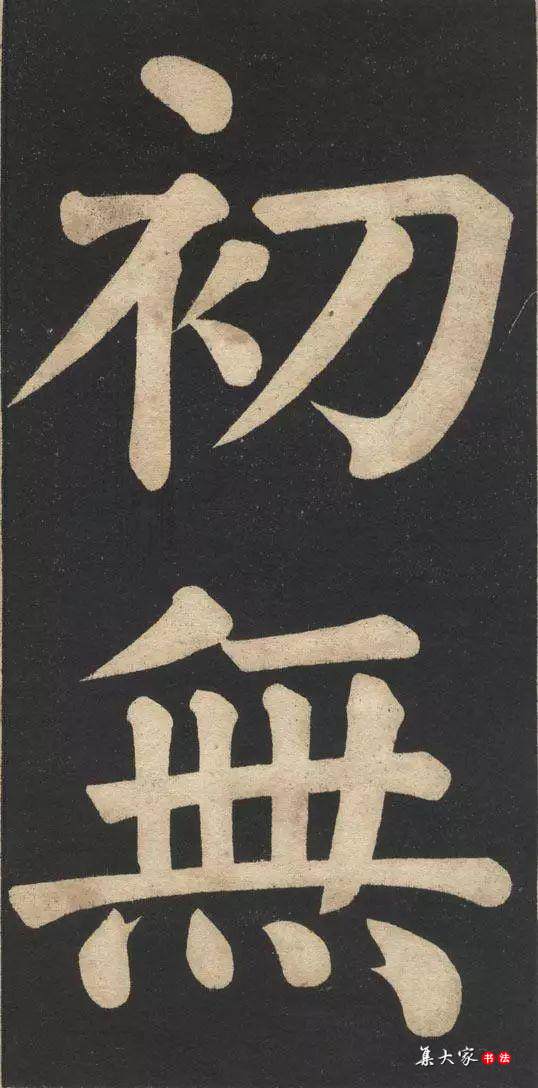 初
無
集大家书法